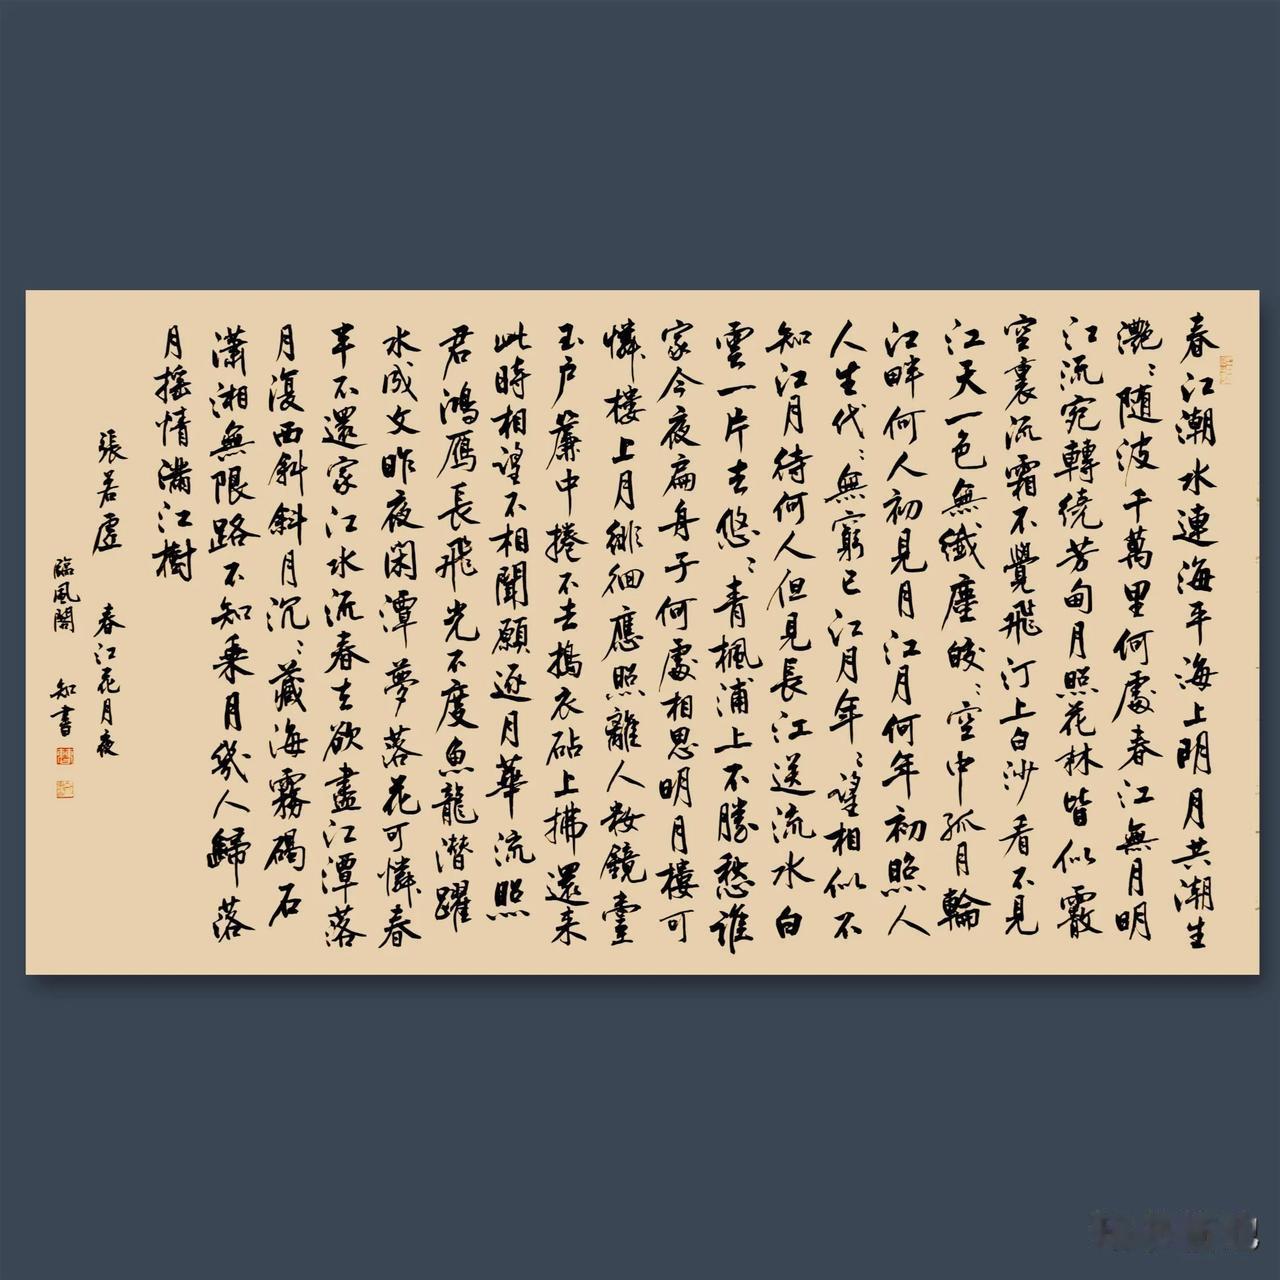 春江潮水連海平海上明月共潮生
灧灧随波千萬里何處春江無月明
江流宛轉繞芳甸月照花林皆似霰
空裏流霜不覺飛汀上白沙看不見
江天一色無纖塵皎皎空中孤月輪
江畔何人初見月江月何年初照人
人生代代無窮已江月年年望相似不
知江月待何人但見長江送流水白
雲一片去悠悠青楓浦上不勝愁誰
家今夜扁舟子何處相思明月樓可
憐樓上月徘徊應照離人妝鏡臺
玉户簾中捲不去搗衣砧上拂還来
此時相望不相聞願逐月華流照
君鴻雁長飛光不度魚龍潜躍
水成文昨夜閑潭夢落花可憐春
半不還家江水流春去欲盡江潭落
月復西斜斜月沉沉藏海霧碣石
瀟湘無限路不知乘月幾人歸落
月摇情滿江樹
張若虚 春江花月夜
臨風閣 知書